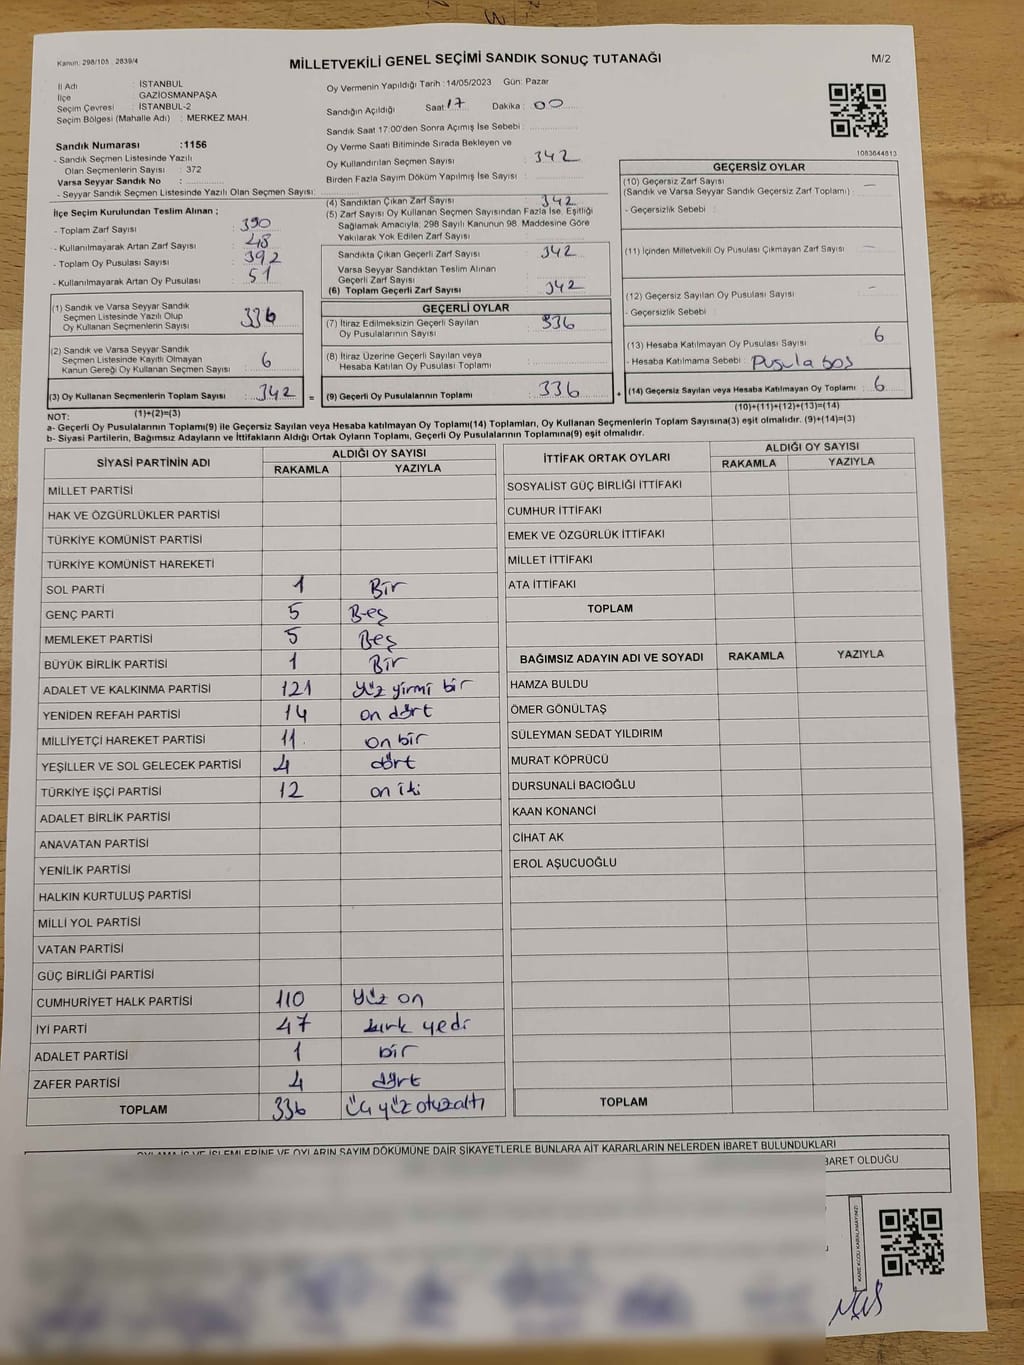 Kanun: 298/105 2839/4
MİLLETVEKİLİ GENEL SEÇİMİ SANDIK SONUÇ TUTANAĞI
M/2
İl Adı : İSTANBUL
İlçe : GAZİOSMANPAŞA
Seçim Çevresi : İSTANBUL-2
Seçim Bölgesi (Mahalle Adı) : MERKEZ MAH.
Oy Vermenin Yapıldığı Tarih : 14/05/2023 Gün: Pazar
Sandığın Açıldığı Saat: 17 Dakika : 00
Sandık Saat 17:00'den Sonra Açımış İse Sebebi :
Oy Verme Saati Bitiminde Sırada Bekleyen ve
Oy Kullandırılan Seçmen Sayısı : 342
Birden Fazla Sayım Döküm Yapılmış İse Sayısı :
1083644813
Sandık Numarası :1156
- Sandık Seçmen Listesinde Yazılı
Olan Seçmenlerin Sayısı : 372
Varsa Seyyar Sandık No :
- Seyyar Sandık Seçmen Listesinde Yazılı Olan Seçmen Sayısı:
İlçe Seçim Kurulundan Teslim Alınan ;
- Toplam Zarf Sayısı : 390
- Kullanılmayarak Artan Zarf Sayısı : 48
- Toplam Oy Pusulası Sayısı : 392
- Kullanılmayarak Artan Oy Pusulası : 51
(1) Sandık ve Varsa Seyyar Sandık
Seçmen Listesinde Yazılı Olup
Oy Kullanan Seçmenlerin Sayısı : 336
(2) Sandık ve Varsa Seyyar Sandık
Seçmen Listesinde Kayıtlı Olmayan
Kanun Gereği Oy Kullanan Seçmen Sayısı : 6
(3) Oy Kullanan Seçmenlerin Toplam Sayısı : 342
(1)+(2)=(3)
(4) Sandıktan Çıkan Zarf Sayısı : 342
(5) Zarf Sayısı Oy Kullanan Seçmen Sayısından Fazla İse, Eşitliği
Sağlamak Amacıyla, 298 Sayılı Kanunun 98. Maddesine Göre
Yakılarak Yok Edilen Zarf Sayısı :
Sandıkta Çıkan Geçerli Zarf Sayısı : 342
Varsa Seyyar Sandıktan Teslim Alınan
Geçerli Zarf Sayısı :
(6) Toplam Geçerli Zarf Sayısı : 342
GEÇERLİ OYLAR
(7) İtiraz Edilmeksizin Geçerli Sayılan
Oy Pusulalarının Sayısı : 336
(8) İtiraz Üzerine Geçerli Sayılan veya
Hesaba Katılan Oy Pusulası Toplamı :
= (9) Geçerli Oy Pusulalarının Toplamı : 336
GEÇERSİZ OYLAR
(10) Geçersiz Zarf Sayısı
(Sandık ve Varsa Seyyar Sandık Geçersiz Zarf Toplamı) : —
- Geçersizlik Sebebi :
(11) İçinden Milletvekili Oy Pusulası Çıkmayan Zarf Sayısı : —
(12) Geçersiz Sayılan Oy Pusulası Sayısı : —
- Geçersizlik Sebebi :
(13) Hesaba Katılmayan Oy Pusulası Sayısı : 6
- Hesaba Katılmama Sebebi : Pusula boş
+ (14) Geçersiz Sayılan veya Hesaba Katılmayan Oy Toplamı : 6
(10)+(11)+(12)+(13)=(14)
NOT:
a- Geçerli Oy Pusulalarının Toplamı(9) ile Geçersiz Sayılan veya Hesaba katılmayan Oy Toplamı(14) Toplamları, Oy Kullanan Seçmenlerin Toplam Sayısına(3) eşit olmalıdır. (9)+(14)=(3)
b- Siyasi Partilerin, Bağımsız Adayların ve İttifakların Aldığı Ortak Oyların Toplamı, Geçerli Oy Pusulalarının Toplamına(9) eşit olmalıdır.
SİYASİ PARTİNİN ADI
ALDIĞI OY SAYISI
RAKAMLA YAZIYLA
MİLLET PARTİSİ
HAK VE ÖZGÜRLÜKLER PARTİSİ
TÜRKİYE KOMÜNİST PARTİSİ
TÜRKİYE KOMÜNİST HAREKETİ
SOL PARTİ 1 Bir
GENÇ PARTİ 5 Beş
MEMLEKET PARTİSİ 5 Beş
BÜYÜK BİRLİK PARTİSİ 1 Bir
ADALET VE KALKINMA PARTİSİ 121 Yüz yirmi bir
YENİDEN REFAH PARTİSİ 14 on dört
MİLLİYETÇİ HAREKET PARTİSİ 11 on bir
YEŞİLLER VE SOL GELECEK PARTİSİ 4 dört
TÜRKİYE İŞÇİ PARTİSİ 12 on iki
ADALET BİRLİK PARTİSİ
ANAVATAN PARTİSİ
YENİLİK PARTİSİ
HALKIN KURTULUŞ PARTİSİ
MİLLİ YOL PARTİSİ
VATAN PARTİSİ
GÜÇ BİRLİĞİ PARTİSİ
CUMHURİYET HALK PARTİSİ 110 Yüz on
İYİ PARTİ 47 kırk yedi
ADALET PARTİSİ 1 bir
ZAFER PARTİSİ 4 dört
TOPLAM 336 Üç yüz otuzaltı
İTTİFAK ORTAK OYLARI
ALDIĞI OY SAYISI
RAKAMLA YAZIYLA
SOSYALİST GÜÇ BİRLİĞİ İTTİFAKI
CUMHUR İTTİFAKI
EMEK VE ÖZGÜRLÜK İTTİFAKI
MİLLET İTTİFAKI
ATA İTTİFAKI
TOPLAM
BAĞIMSIZ ADAYIN ADI VE SOYADI RAKAMLA YAZIYLA
HAMZA BULDU
ÖMER GÖNÜLTAŞ
SÜLEYMAN SEDAT YILDIRIM
MURAT KÖPRÜCÜ
DURSUNALİ BACIOĞLU
KAAN KONANCİ
CİHAT AK
EROL AŞUCUOĞLU
TOPLAM
OYLAMA İŞ VE İŞLEMLERİNE VE OYLARIN SAYIM DÖKÜMÜNE DAİR ŞİKAYETLERLE BUNLARA AİT KARARLARIN NELERDEN İBARET BULUNDUKLARI
BARET OLDUĞU